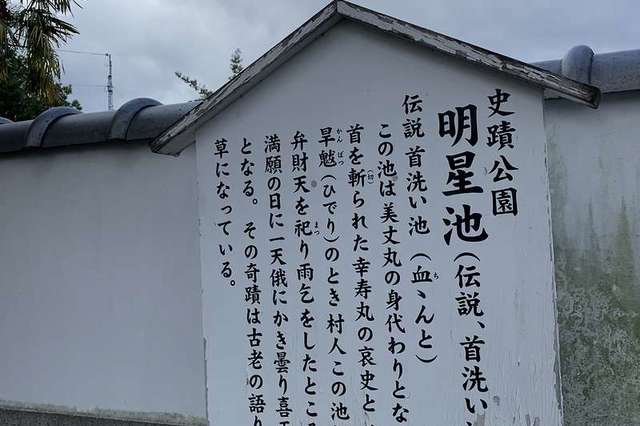 史蹟公園
明星池(伝説、首洗い
伝説 首洗い池(血ヽんと)
ち
この池は美丈丸の身代わりとな
首を斬られた幸寿丸の哀史と
(切)
旱魃(ひでり)のとき村人この池
かん ばつ
弁財天を祀り雨乞をしたところ
まつ
満願の日に一天俄にかき曇り喜
となる。その奇蹟は古老の語り
草になっている。